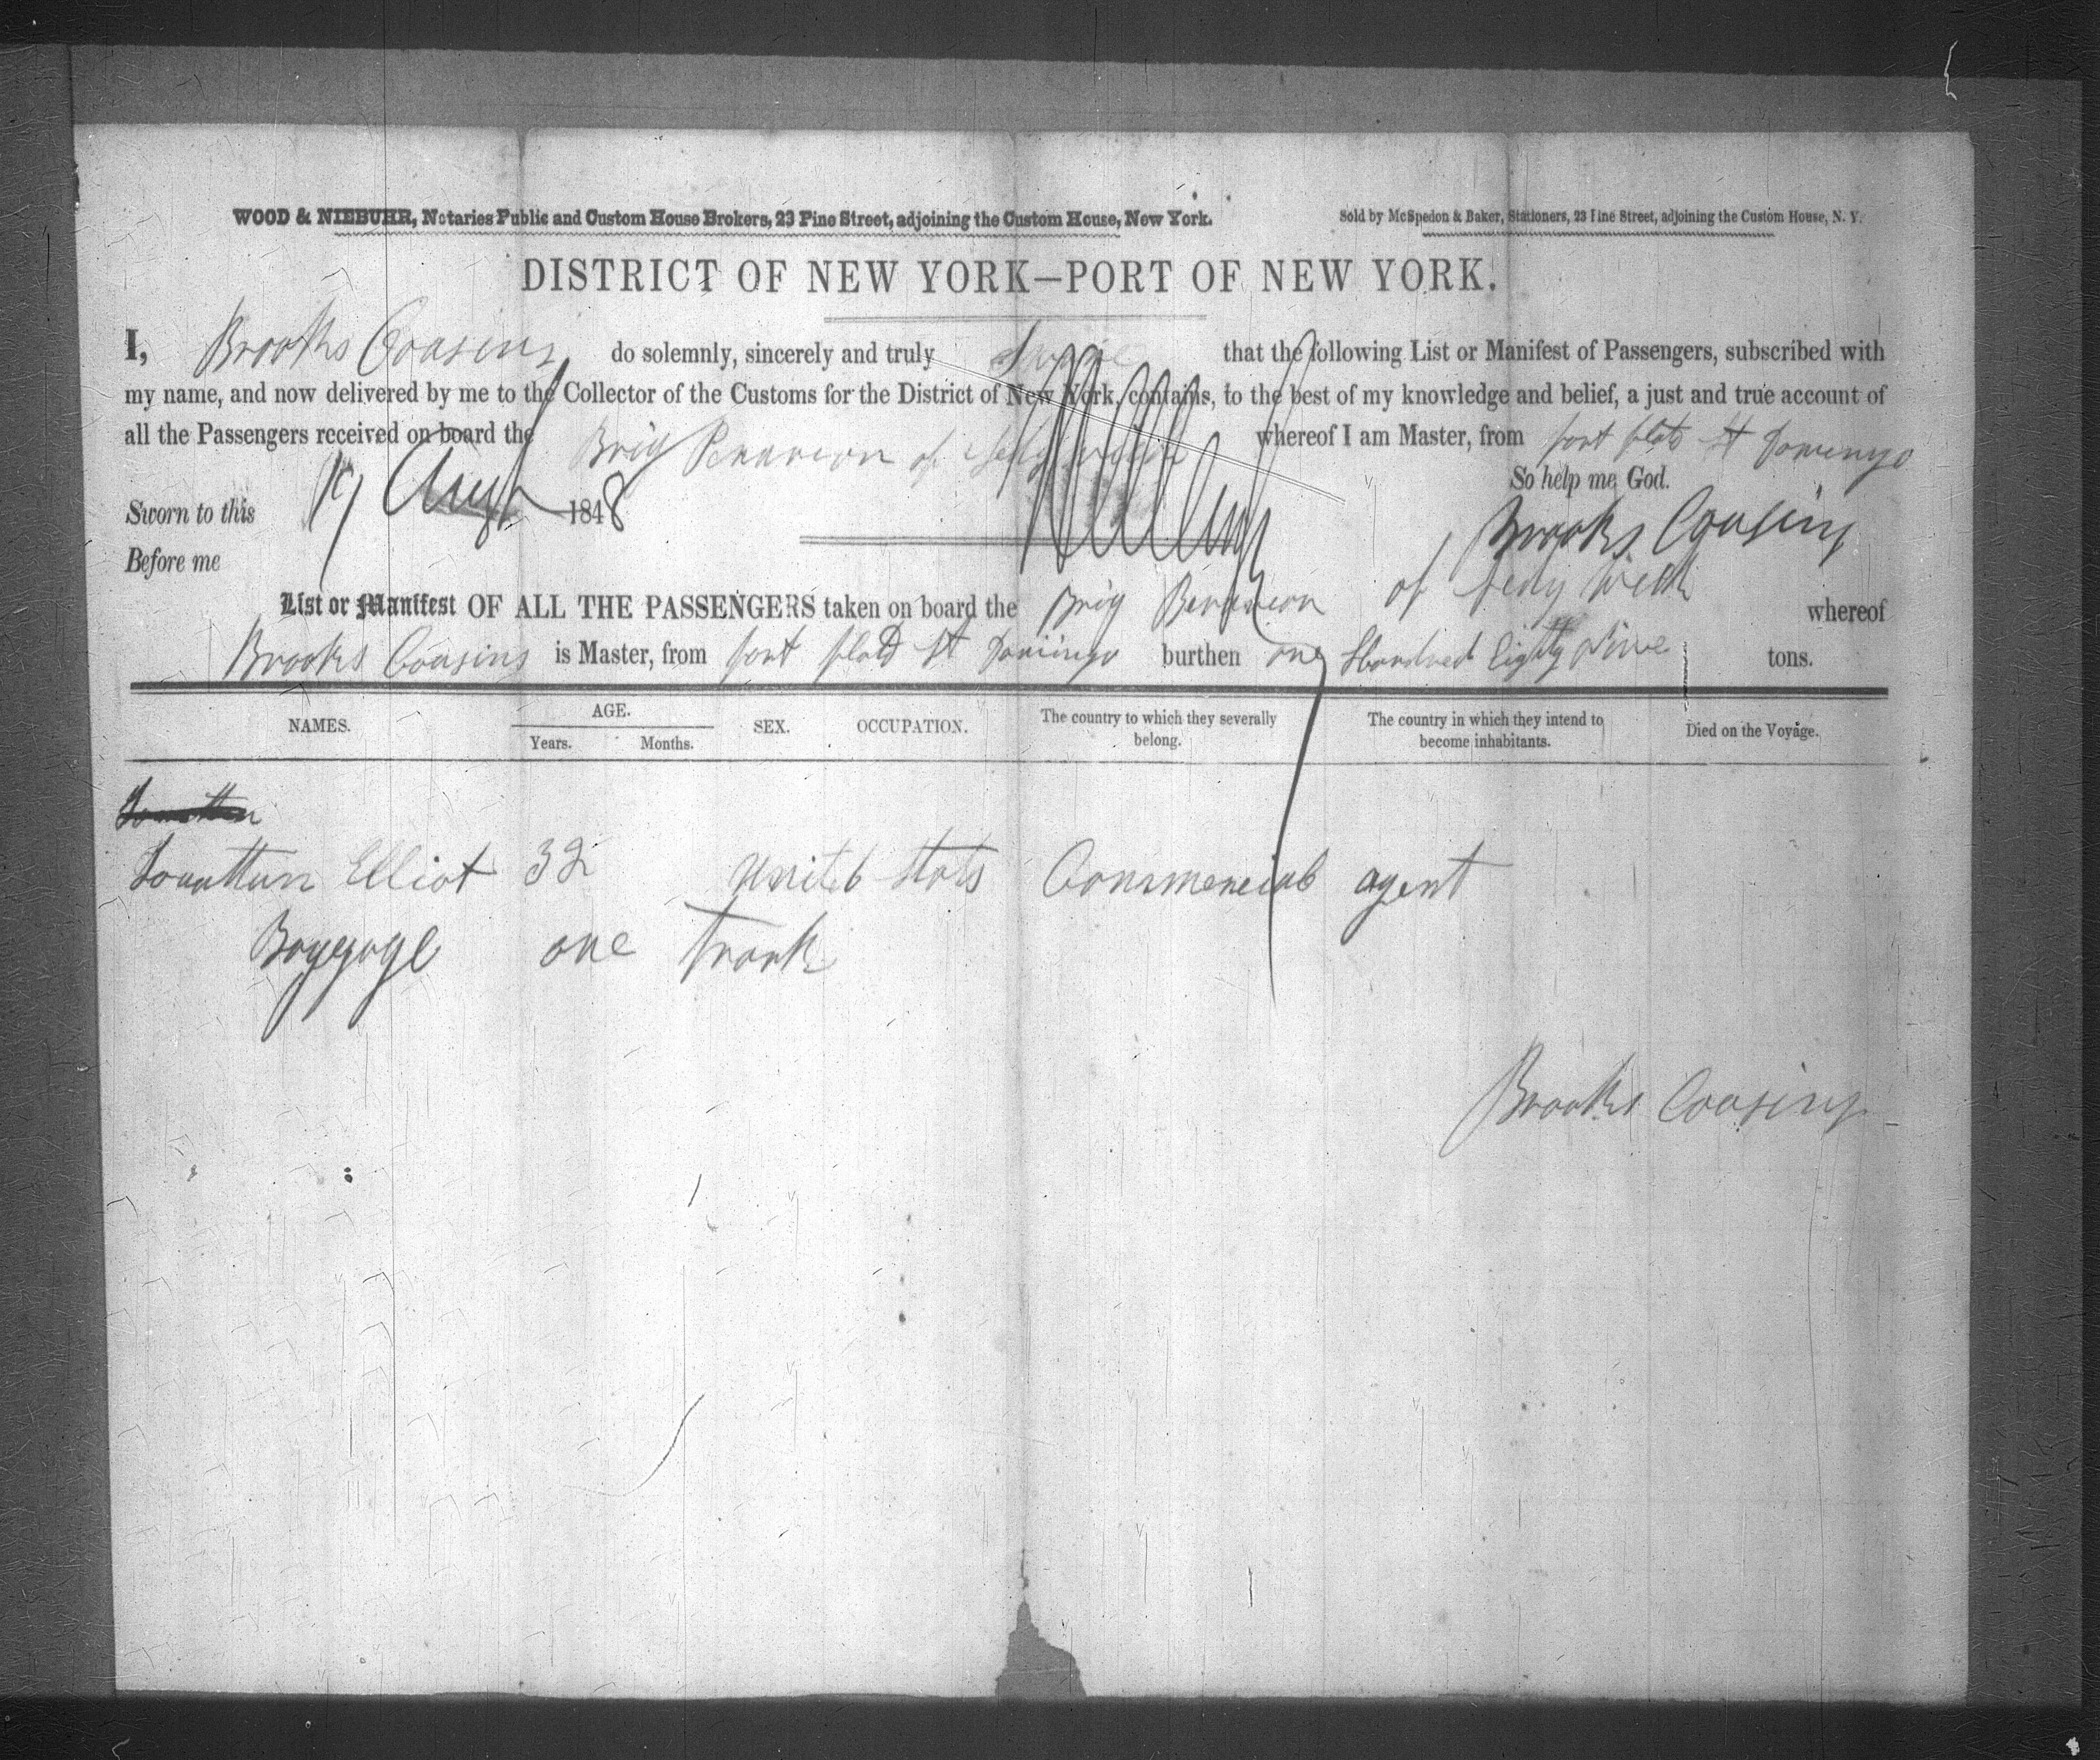 WOOD & NIEBUHR, Notaries Public and Custom House Brokers, 23 Pine Street, adjoining the Custom House, New York.
Sold by McSpedon & Baker, Stationers, 23 Pine Street, adjoining the Custom House, N. Y.
DISTRICT OF NEW YORK—PORT OF NEW YORK.
I, Brooks Cousins do solemnly, sincerely and truly that the following List or Manifest of Passengers, subscribed with
my name, and now delivered by me to the Collector of the Customs for the District of New York, contains, to the best of my knowledge and belief, a just and true account of
all the Passengers received on board the Brig of whereof I am Master, from port plat St Domingo
So help me God.
Sworn to this 19 Augt 1848
Brooks Cousins
Before me
List or Manifest OF ALL THE PASSENGERS taken on board the Brig of whereof
Brooks Cousins is Master, from port plat St Domingo burthen one Hundred Eighty Nine tons.
NAMES. AGE. SEX. OCCUPATION. The country to which they severally belong. The country in which they intend to become inhabitants. Died on the Voyage.
Years. Months.
Jonathan Elliot 32 United Stats Commercial agent
Baggage one Trank
Brooks Cousins